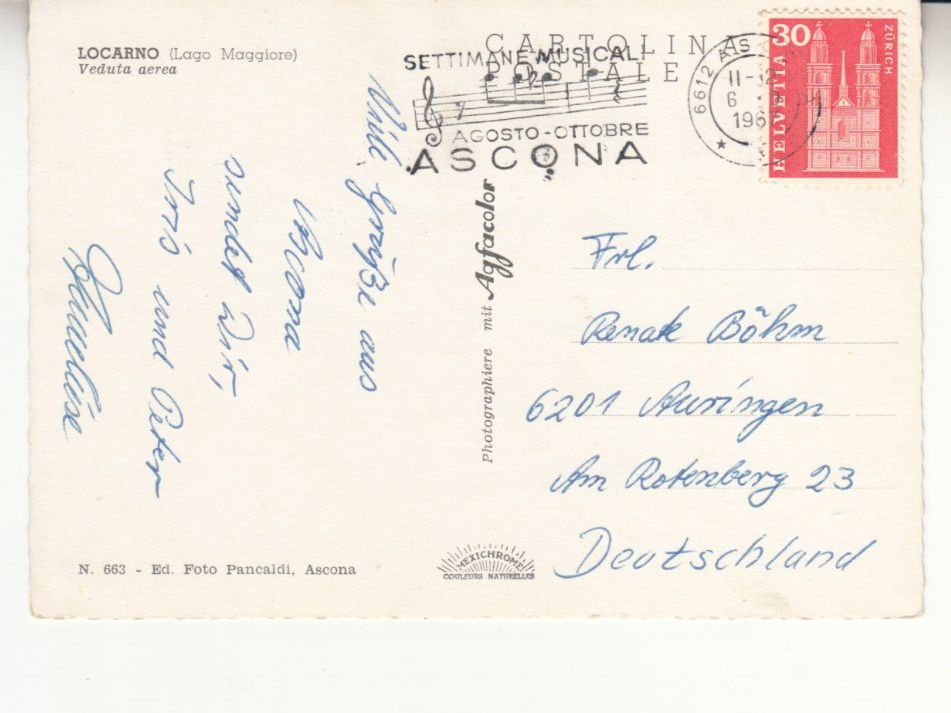 LOCARNO (Lago Maggiore)
Veduta aerea
CARTOLINA
POSTALE
SETTIMANE MUSICALI
AGOSTO-OTTOBRE
ASCONA
6612 AS
11-12
6
196
30
HELVETIA
ZÜRICH
Viele Grüße aus
sendet Dir,
Iris und Peter
Photographiere mit Agfacolor
Frl.
Renate Böhm
6201 Auringen
Am Rotenberg 23
Deutschland
N. 663 - Ed. Foto Pancaldi, Ascona
MEXICHROME
COULEURS NATURELLES